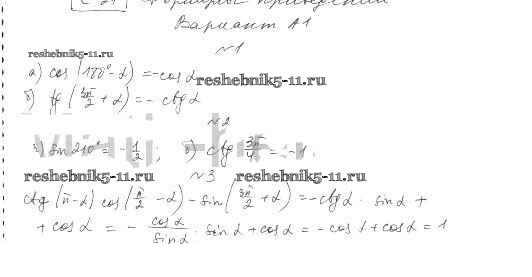 С-21 Формулы приведения
Вариант А1
№1
reshebnik5-11.ru
а) cos (180° - α) = -cos α
reshebnik5-11.ru
б) tg (3π/2 + α) = - ctg α
№2
а) sin 210° = - 1/2 ; б) ctg 3π/4 = -1.
reshebnik5-11.ru №3 reshebnik5-11.ru
ctg (π-α) cos (π/2 - α) - sin (3π/2 + α) = -ctg α · sin α +
+ cos α = - cos α / sin α · sin α + cos α = - cos α + cos α = 1